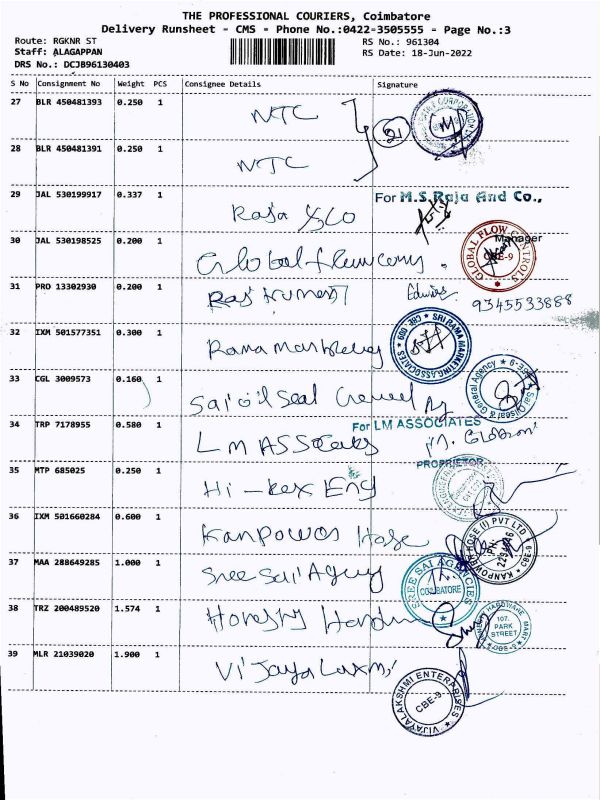 THE PROFESSIONAL COURIERS, Coimbatore
Delivery Runsheet - CMS - Phone No.:0422-3505555 - Page No.:3
Route: RGKNR ST
RS No.: 961304
Staff: ALAGAPPAN
RS Date: 18-Jun-2022
DRS No.: DCJB96130403
S No Consignment No Weight PCS Consignee Details Signature
27 BLR 450481393 0.250 1 NTC
21
28 BLR 450481391 0.250 1 NTC
29 JAL 530199917 0.337 1 Raja & Co
For M.S.Raja And Co.,
Manager
30 JAL 530198525 0.200 1 Global flow
GLOBAL FLOW CONTROLS
CBE-9
31 PRO 13302930 0.200 1
9345533888
32 IXM 501577351 0.300 1 Rama Marketing
SRI RAMA MARKETING ASSOCIATES CBE 009
33 CGL 3009573 0.160 1 Sai oil Seal
Sai Oilseal General Agency
34 TRP 7178955 0.580 1 LM ASSociates
For LM ASSOCIATES
PROPRIETOR
35 MTP 685025 0.250 1 Hi-Rex Eng
36 IXM 501660284 0.600 1 Kanpower Hose
KANPOWER HOSE (I) PVT LTD
CBE-9
37 MAA 288649285 1.000 1 Sree Sai Agency
SREE SAI AGENCIES
COIMBATORE
38 TRZ 200489520 1.574 1 Honesty
HARDWARE MART
107,
PARK
STREET
CBE-9
39 MLR 21039020 1.900 1 Vijaya Laxmi
VIJAYALAKSHMI ENTERPRISES
CBE-9